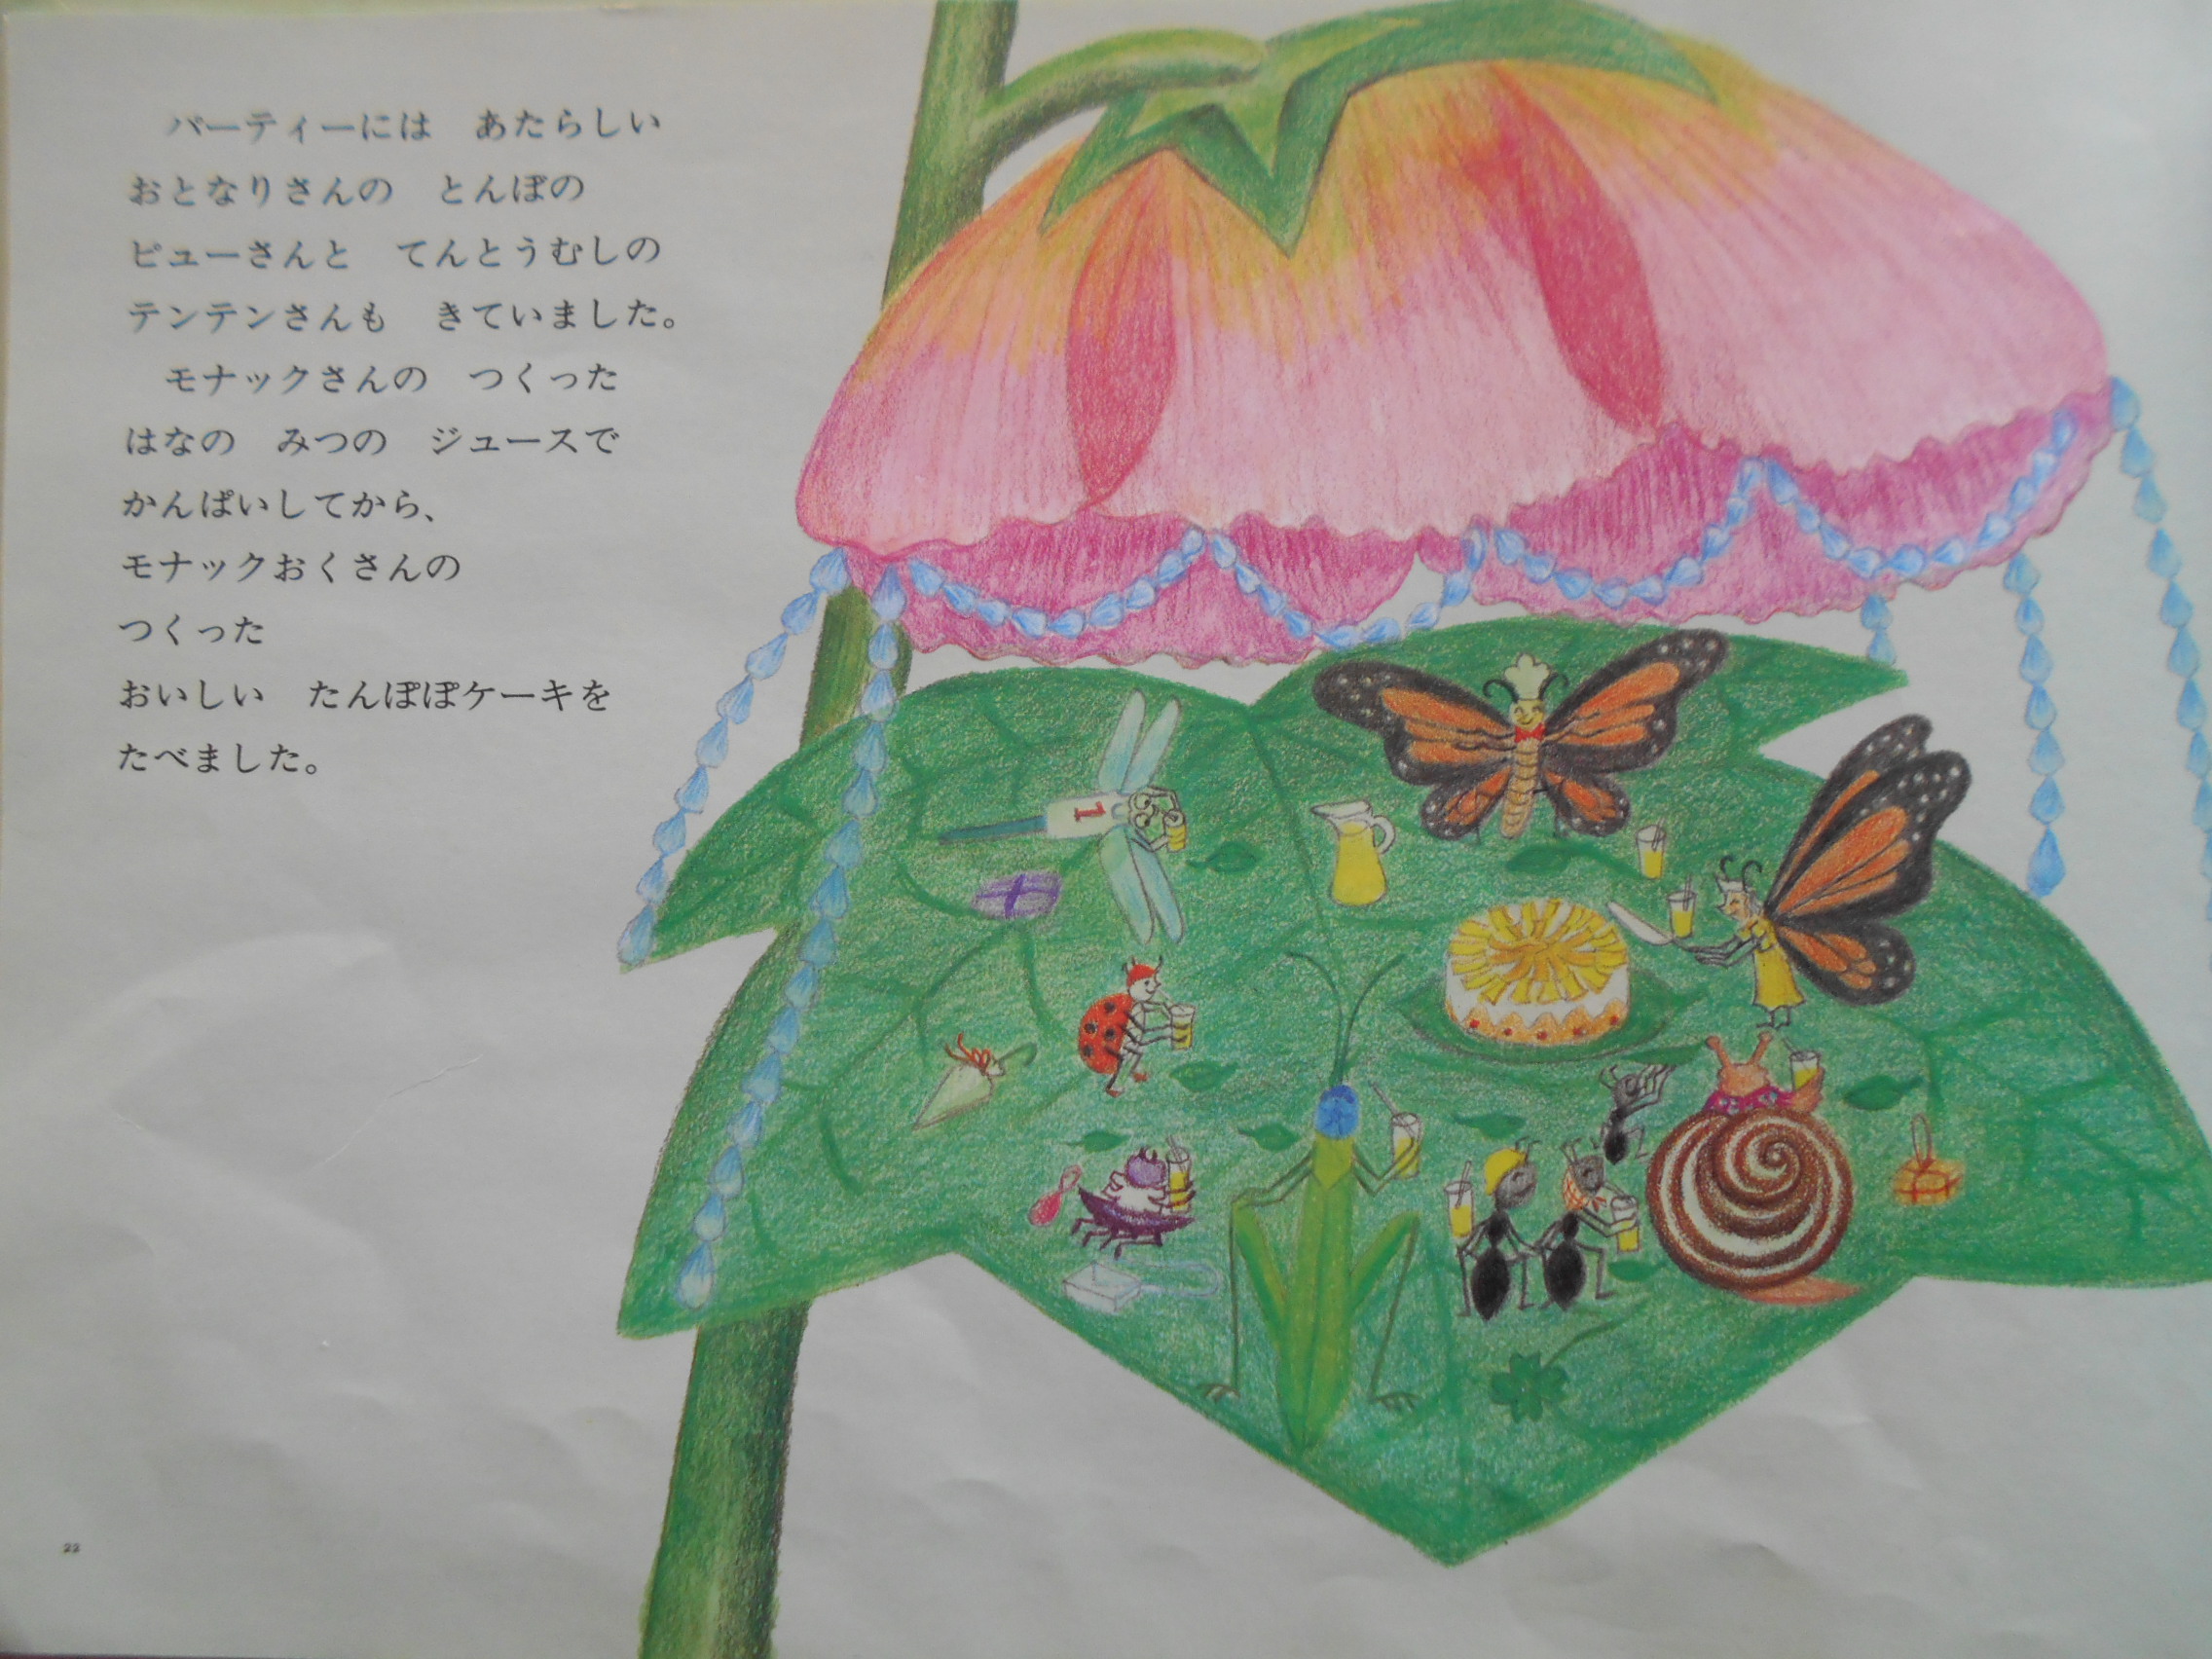 パーティーには　あたらしい
おとなりさんの　とんぼの
ピューさんと　てんとうむしの
テンテンさんも　きていました。
モナックさんの　つくった
はなの　みつの　ジュースで
かんぱいしてから、
モナックおくさんの
つくった
おいしい　たんぽぽケーキを
たべました。
1
22